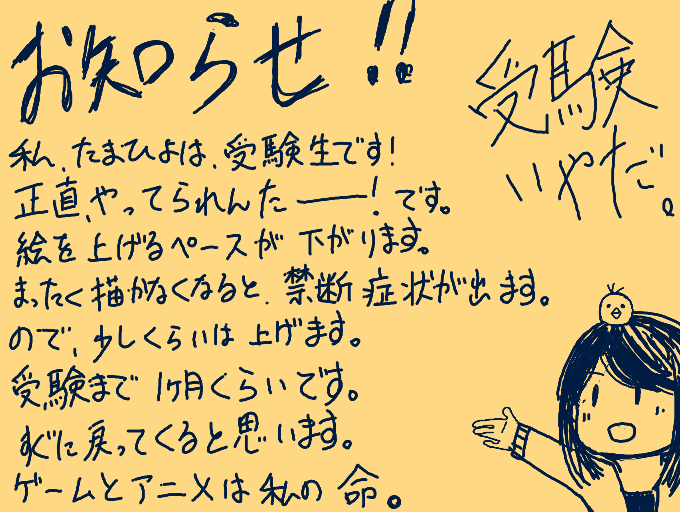 お知らせ!!
受験
いやだ。
私、たまひよは、受験生です!
正直、やってられんたー!です。
絵を上げるペースが下がります。
まったく描かなくなると、禁断症状が出ます。
ので、少しくらいは上げます。
受験まで1ヶ月くらいです。
すぐに戻ってくると思います。
ゲームとアニメは私の命。